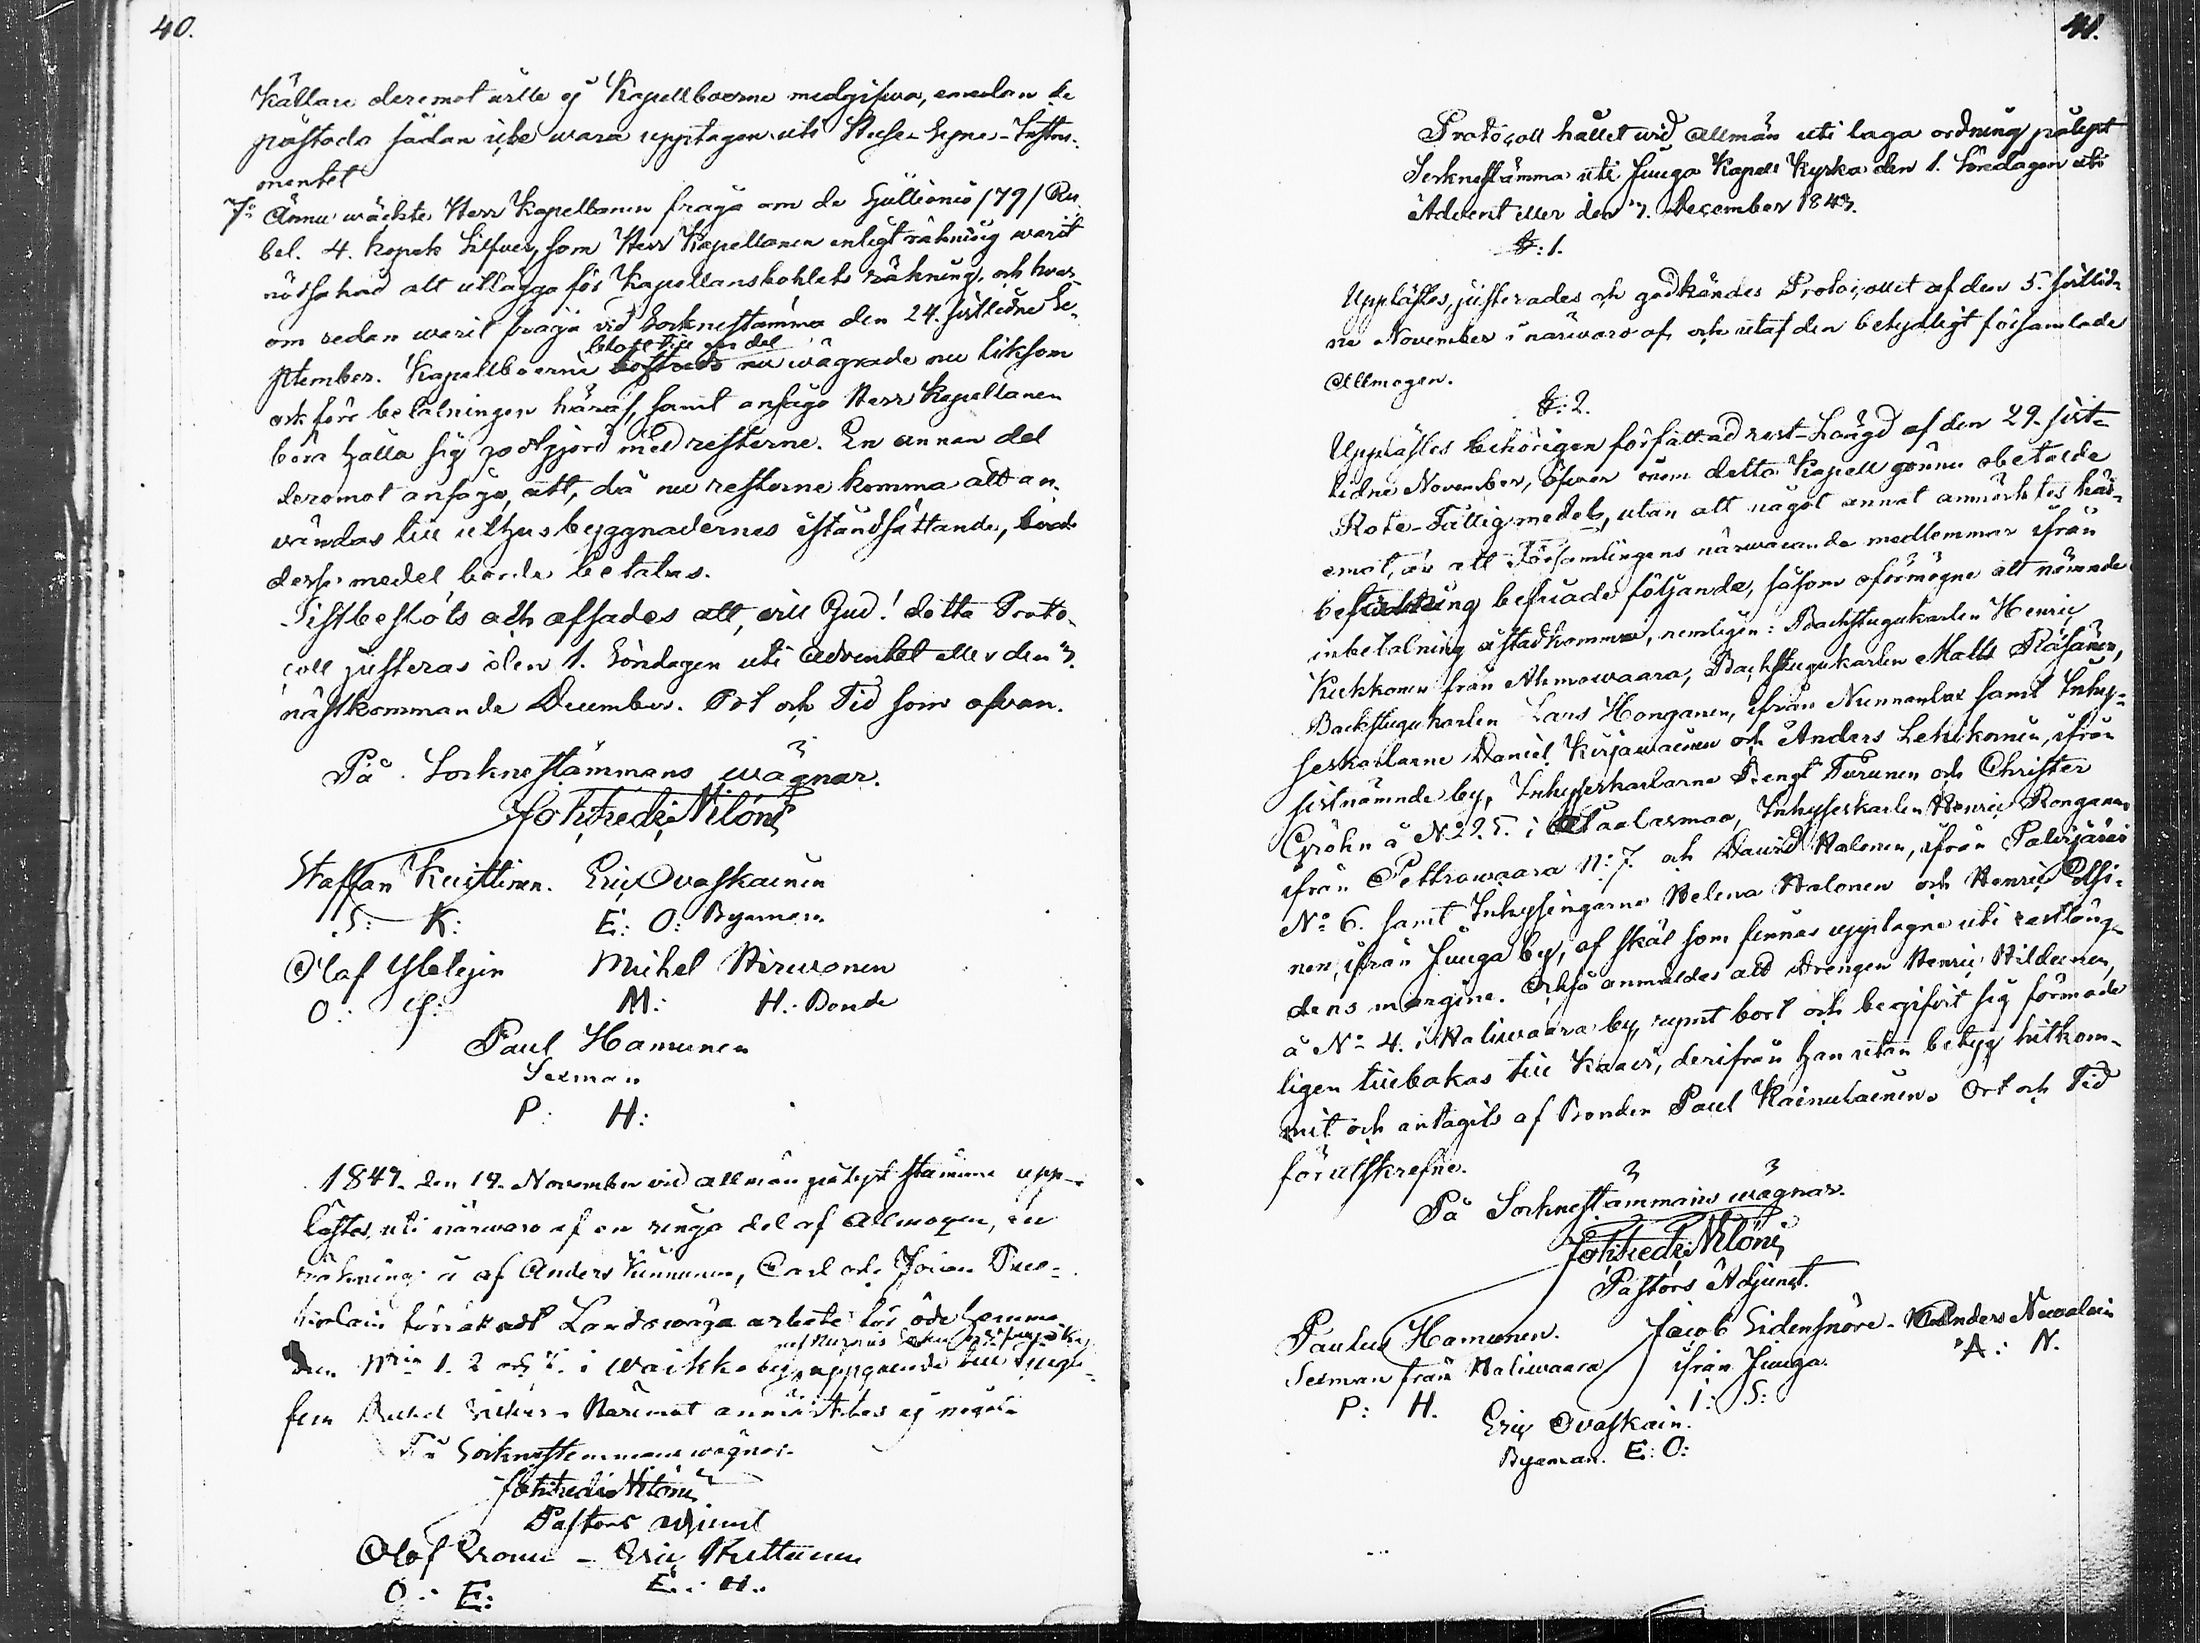 40.
Källare deremot wille ej Kapellboerne medgifwa, emedan de
påstodo sådan icke wara upptagen uti Huse-Syns-Instru-
mentet
7:o Ännu wäckte Herr Kapellanen fråga om de /79/ Ru-
bel. 4. kopek Silfver, som Herr Kapellanen enligt räkning warit
nödsakad att utlägga för Kapellansbohlets räkning, och hvar-
om redan warit fråga vid Socknestämma den 24. sistledne Se-
ptember. Kapellboerne till en del nu wägrade nu liksom
och före betalningen häraf, samt ansågo Herr Kapellanen
böra hålla sig godtgjord med resterne. En annan del
deremot ansågo, att, då nu resterne komma att an-
wändas till uthusbyggnadernes iståndsättande,
desse medel borde betalas.
Sist beslöts och afsades att, will Gud! detta Proto-
coll justeras den 1. Söndagen uti Adventet eller den 3.
nästkommande December. Ort och Tid som ofvan.
På Socknestämmans wägnar.
Joh: Fredr: Nilöni
Staffan Kuittinen. Eric Ovaskainen
S: K: E: O: Byeman.
Olaf Michel Hirwonen
O: M: H: Bonde
Paul Hamunen
Sexman
P: H:
1843. den 19. November vid allmän pålyst stämma upp-
lästes uti närwaro af en ringa del af Allmogen, en
räkning å af Anders Kinnunen, Carl och Johan
förrättadt Landswäga arbete för öde hemma-
nen N:ris 1. 2 och i Waikko by, uppgående till tjugu-
fem Rubel Silfver. Häremot anmärktes ej något.
På Socknestemmans wägnar.
Joh: Fredr: Nilöni
Pastors Adjunct
Olof Eronen - Eric Huttunen
O: E: E: H:
41.
Protocoll hållet wid Allmän uti laga ordning pålyst
Socknestämma uti Juuga Kapell Kyrka den 1. Söndagen uti
Advent eller den 3. December 1843.
§: 1.
Upplästes, justerades och godkändes Protocollet af den 5. sistlid-
ne November i närwaro af och utaf den betydligt församlade
Allmogen.
§: 2.
Upplästes behörigen författad rest-Längd af den 29. sist-
lidne November, öfwer inom detta Kapell ännu obetalde
Rote-Fattigmedel, utan att något annat anmärktes här-
emot, än att Församlingens närwarande medlemmar ifrån
befriade följande, såsom oförmögne att nämnde
inbetalning åstadkomma, nemligen: Backstugukarlen Henric
Kukkonen från Ahmowaara, Backstugukarlen Matts Räsänen,
Backstugukarlen Lars Honganen, ifrån Nunnanlax samt Inhy-
seskarlarne Daniel Kirjawainen och Anders Lehikoinen, ifrån
sistnämnde by, Inhyseskarlarne Bengt Turunen och Christer
Gröhn å N:o 25. i Paalasmaa, Inhyseskarlen Henric Ronganen
ifrån Pettrowaara N:o 7. och David Halonen, ifrån Polvijärvi
N:o 6. samt Inhysingarne Helena Halonen och Henric Pesi-
nen, ifrån Juuga by, af skäl som finnas upptagne uti restläng-
dens margine. Också anmäldes att Drengen Henric Hildunen,
å N:o 4. i Haliwaara by, rymt bort och begifvit sig förmode-
ligen tillbakas till Kaavi, derifrån han utan betyg hitkom-
mit och antagits af Bonden Paul Kainulainen. Ort och Tid
förutskrefne.
På Socknestämmans wägnar.
Joh: Fredr: Nilöni
Pastors Adjunct.
Paulus Hamunen. Jacob Sidensnöre. Anders Nevalain
Sexman från Haliwaara ifrån Juuga. A: N.
P: H. I: S:
Eric Ovaskain.
Byeman. E: O: